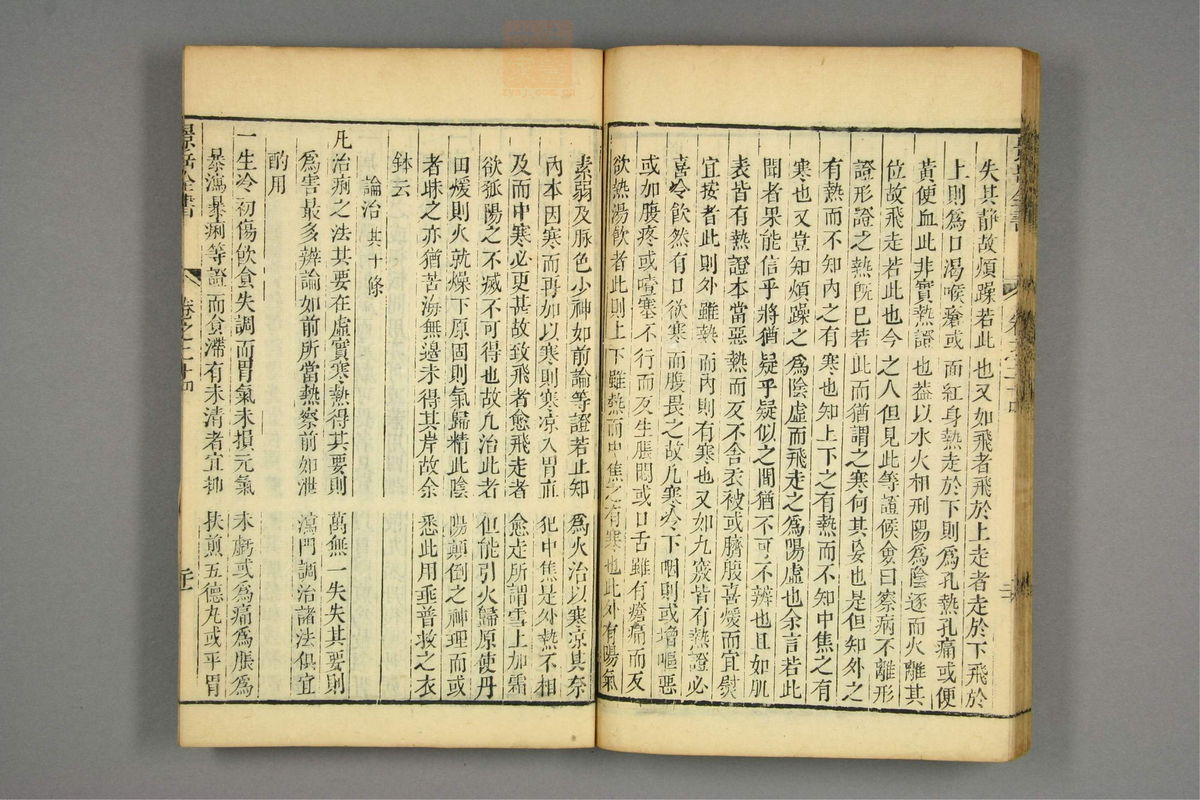 失其靜故煩躁若此也又如飛者飛於上走者走於下飛於
上則爲口渴喉瘡或面紅身熱走於下則爲孔熱孔痛或便
黃便血此非實熱證也葢以水火相刑陽爲陰逐而火離其
位故飛走若此也今之人但見此等證候僉曰察病不離形
證形證之熱旣已若此而猶謂之寒何其妄也是但知外之
有熱而不知內之有寒也知上下之有熱而不知中焦之有
寒也又豈知煩躁之爲陰虛而飛走之爲陽虛也余言若此
聞者果能信乎將猶疑乎疑似之間猶不可不辨也且如肌
表皆有熱證本當惡熱而反不舍衣被或臍腹喜煖而宜熨
宜按者此則外雖熱而內則有寒也又如九竅皆有熱證必
喜冷飲然有口欲寒而腹畏之故凡寒冷下咽則或增嘔惡
或如腹疼或噎塞不行而反生脹悶或口舌雖有瘡痛而反
欲熱湯飲者此則上下雖熱而中焦之有寒也此外有陽氣
素弱及脉色少神如前論等證若止知爲火治以寒凉其奈
內本因寒而再加以寒則寒凉入胃直犯中焦是外熱不相
及而中寒必更甚故致飛者愈飛走者愈走所謂雪上加霜
欲孤陽之不滅不可得也故凡治此者但能引火歸原使丹
田煖則火就燥下原固則氣歸精此陰陽顛倒之神理而或
者昧之亦猶苦海無邊未得其岸故余悉此用垂普救之衣
鉢云
論治 其十條
凡治痢之法其要在虛實寒熱得其要則萬無一失失其要則
爲害最多辨論如前所當熟察前如泄瀉門調治諸法俱宜
酌用
一生冷初傷飲食失調而胃氣未損元氣未虧或爲痛爲脹爲
暴瀉暴痢等證而食滯有未清者宜抑扶煎五德丸或平胃
景岳全書
卷之二十四